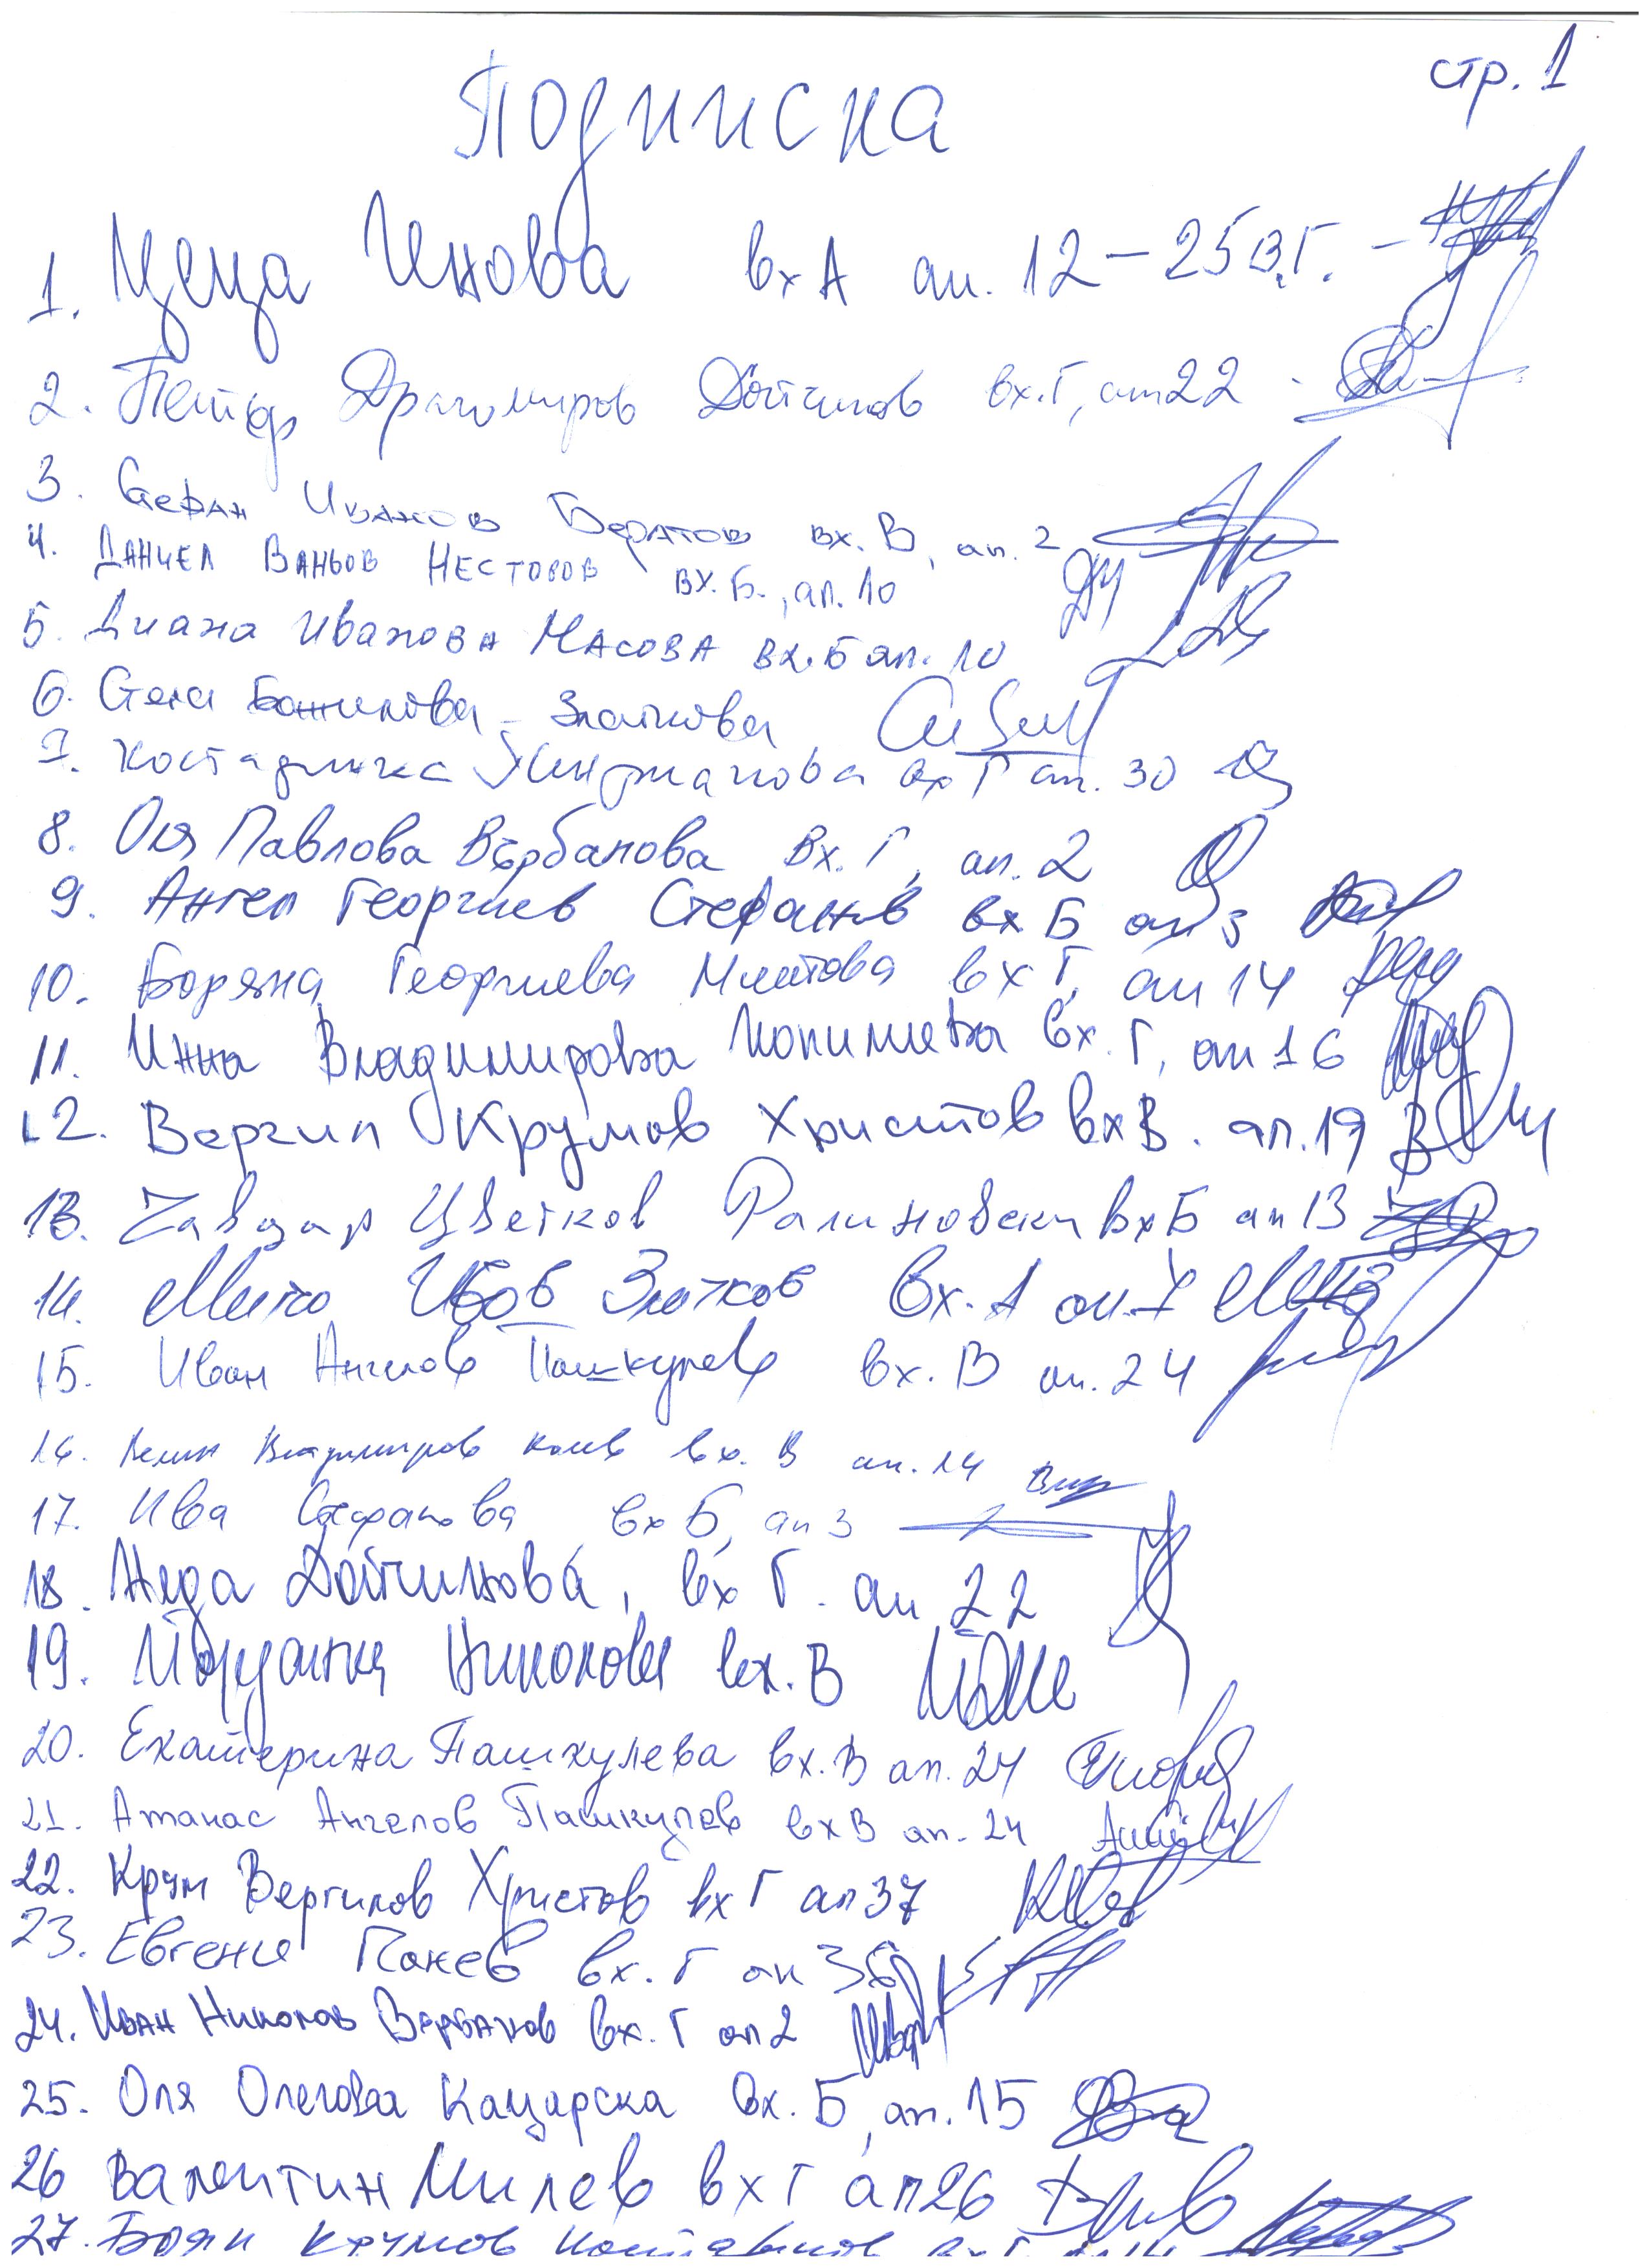 стр. 1
Подписка
1. Цеца Инова вх А ап. 12 – 25 в.Г. –
2. Петър Драгомиров Дойчинов вх. Г, ап 22
3. Стефан Иванов вх. В, ап. 2
4. Даниел Ваньов Несторов вх. Б., ап. 10
5. Диана Иванова Масова вх. Б ап. 10
6. Златкова
7. Костадинка вх Г ап. 30
8. Оля Павлова Върбанова вх. Г, ап. 2
9. Ангел Георгиев Стефанов вх Б ап 3
10. Боряна Георгиева Митова вх Г, ап 14
11. Инна Владимирова вх. Г, ап 16
12. Вергил Крумов Христов вх В. ап. 19
13. Цветков вх Б ап 13
14. Митко Златков вх. А ап.
15. Иван Ангелов Пашкулев вх. В ап. 24
16. Владимиров вх. В ап. 14
17. Ива Стефанова вх Б, ап 3
18. Неда Дойчинова, вх Г. ап 22
19. Йорданка Николова вх. В
20. Екатерина Пашкулева вх. В ап. 24
21. Атанас Ангелов Пашкулев вх В ап. 24
22. Крум Вергилов Христов вх Г ап 37
23. Евгени вх. Г ап
24. Иван Николов Върбанов вх. Г ап 2
25. Оля Олегова Кацарска вх. Б, ап. 15
26 Валентин Милев вх Г ап 26
27. Боян Крумов